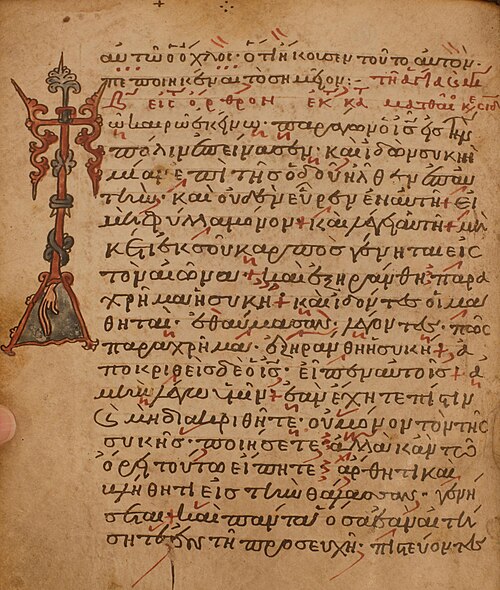 αὐτῶ ὁ ὄχλος· ὅτι ἤκουσεν τοῦτο αὐτὸν·
πεποιηκέναι τὸ σημεῖον:– τῇ ἁγία
εἰς ὄρθρον ἐκ κατὰ ματθαῖον
Τῶ καιρῶ ἐκείνω· παράγων ὁ ἰς τὴν
πόλιν ἐπείνασεν· καὶ ἰδὼν συκῆν
μίαν ἐπὶ τῆς ὁδοῦ ἦλθεν ἐπαυ
τὴν· καὶ οὐδὲν εὗρεν ἐν αὐτῆ + εἰ
μὴ φύλλα μόνον + καὶ λέγει αὐτῆ + μη
κέτι ἐκ σοῦ καρπὸς γένηται εἰς
τὸν αἰῶνα· + καὶ ἐξηράνθη παρα
χρῆμα ἡ συκῆ + καὶ ἰδόντες οἱ μα
θηταὶ· ἐθαύμασαν· λέγοντες· πῶς
παραχρῆμα· ἐξηράνθη ἡ συκῆ + ἀ
ποκριθεὶς δὲ ὁ ἰς· εἶπεν αὐτοῖς + ἀ
μὴν λέγω ὑμῖν + ἐὰν ἔχητε πίστιν
καὶ μὴ διακριθῆτε· οὐ μόνον τὸ τῆς
συκῆς· ποιήσετε ἀλλὰ κἂν τῶ
ὄρει τούτω εἴπητε ἄρθητι καὶ
βλήθητι εἰς τὴν θάλασσαν· γενή
σεται + καὶ πάντα ὅσα ἐὰν αἰτή
σητε ἐν τῇ προσευχῇ· πιστεύοντες